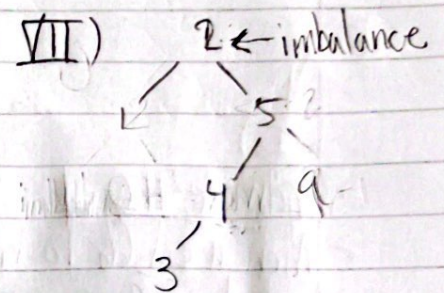 VII) 2 ← imbalance
5
4 9
3